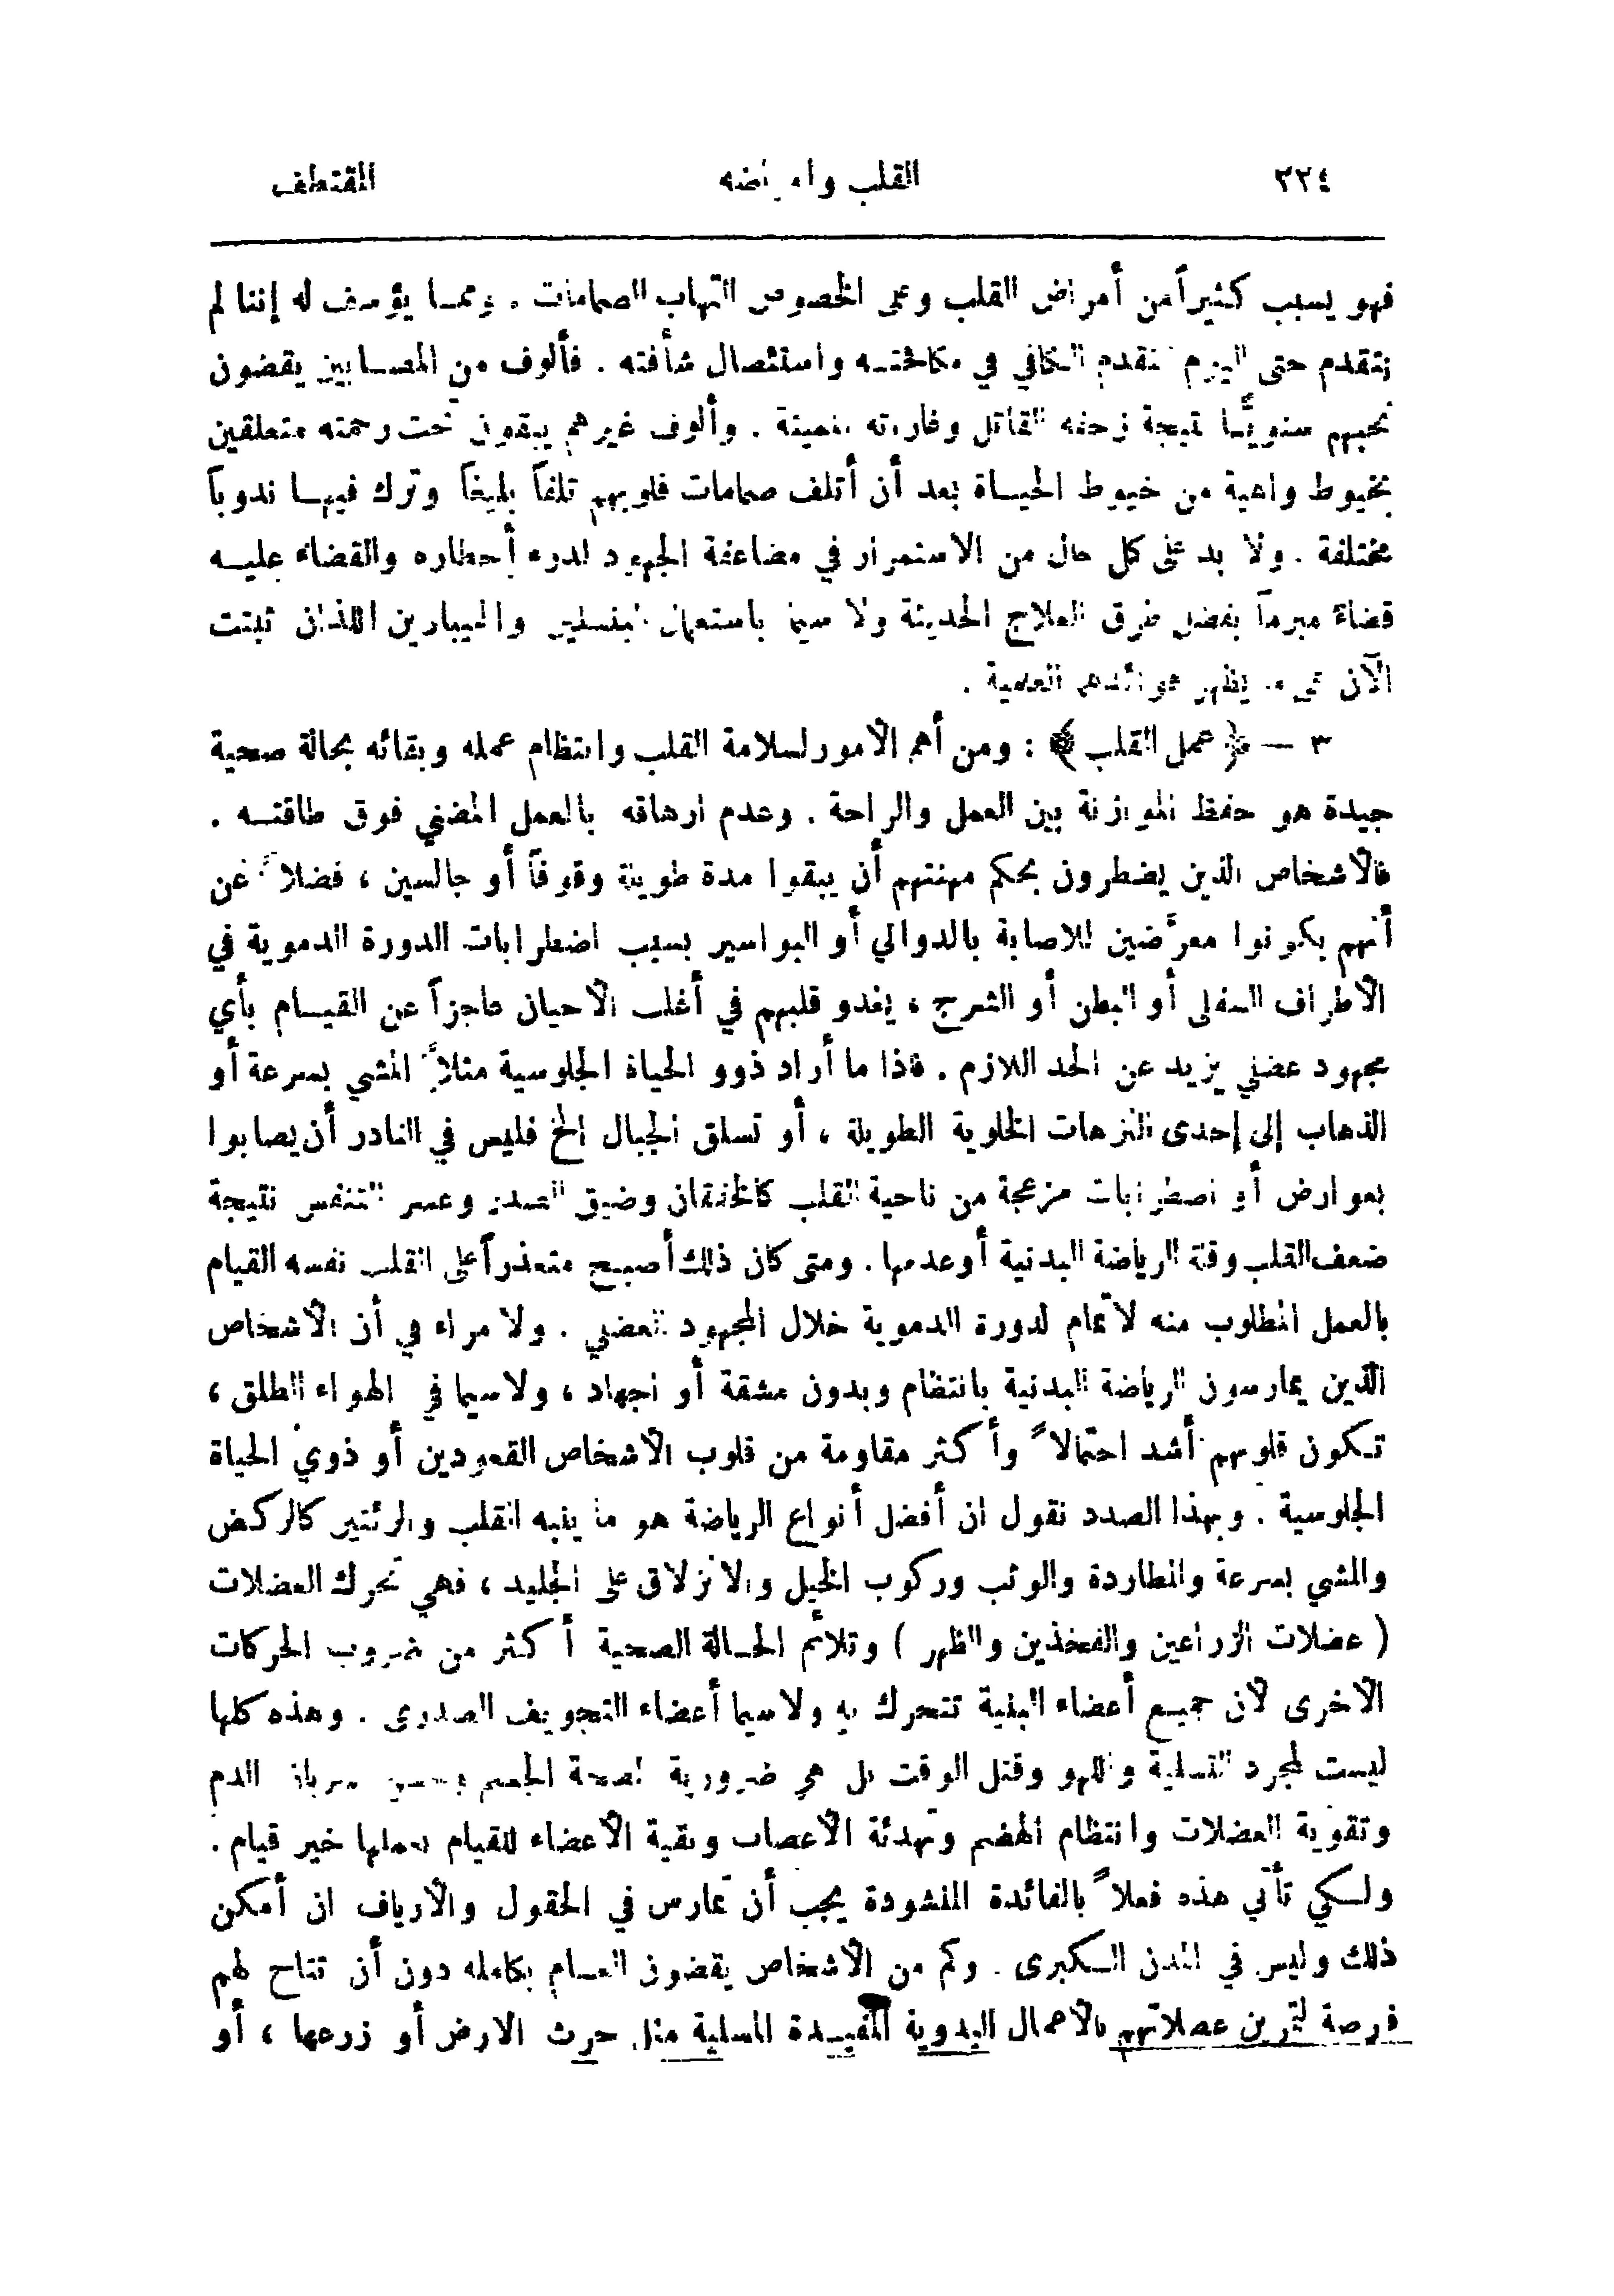 ٢٢٤ القلب وأمراضه المقتطف
فهو يسبب كثيراً من أمراض القلب وعلى الخصوص التهاب الصمامات . ومما يؤسف له إننا لم
نتقدم حتى اليوم التقدم الكافي في مكافحته واستئصال شأفته . فألوف من المصابين يقضون
نحبهم سنويًّا نتيجة زحفه القاتل وغاراته المميتة . وألوف غيرهم يبقون تحت رحمته متعلقين
بخيوط واهية من خيوط الحياة بعد أن أتلف صمامات قلوبهم تلفاً بليغاً وترك فيها ندوباً
مختلفة . ولا بد على كل حال من الاستمرار في مضاعفة الجهود لدرء أخطاره والقضاء عليه
قضاءً مبرماً بفضل طرق العلاج الحديثة ولا سيما باستعمال البنسلين والهيبارين اللذان ثبتت
الآن يظهر فوائدهم العلمية .
٣ — ﴿ عمل القلب ﴾ : ومن أهم الأمور لسلامة القلب وانتظام عمله وبقائه بحالة صحية
جيدة هو حفظ الموازنة بين العمل والراحة . وعدم ارهاقه بالعمل المضني فوق طاقته .
فالأشخاص الذين يضطرون بحكم مهنتهم أن يبقوا مدة طويلة وقوفاً أو جالسين ، فضلاً عن
أنهم يكونوا معرَّضين للإصابة بالدوالي أو البواسير بسبب اضطرابات الدورة الدموية في
الأطراف السفلى أو البطن أو الشرج ، يغدو قلبهم في أغلب الأحيان عاجزاً عن القيام بأي
مجهود عضلي يزيد عن الحد اللازم . فاذا ما أراد ذوو الحياة الجلوسية مثلاً المشي بسرعة أو
الذهاب إلى إحدى النزهات الخلوية الطويلة ، أو تسلق الجبال الخ فليس في النادر أن يصابوا
بعوارض أو اضطرابات مزعجة من ناحية القلب كالخفقان وضيق الصدر وعسر التنفس نتيجة
ضعف القلب وقلة الرياضة البدنية أو عدمها . ومتى كان ذلك أصبح متعذراً على القلب نفسه القيام
بالعمل المطلوب منه لاتمام لدورة الدموية خلال المجهود العضلي . ولا مراء في أن الأشخاص
الذين يمارسون الرياضة البدنية بانتظام وبدون مشقة أو اجهاد ، ولاسيما في الهواء الطلق ،
تكون قلوبهم أشد احتمالاً وأكثر مقاومة من قلوب الأشخاص القعودين أو ذوي الحياة
الجلوسية . وبهذا الصدد نقول ان أفضل أنواع الرياضة هو ما ينبه القلب والرئتين كالركض
والمشي بسرعة والمطاردة والوثب وركوب الخيل والانزلاق على الجليد ، فهي تحرك العضلات
( عضلات الزراعين والفخذين والظهر ) وتلائم الحالة الصحية أكثر من ضروب الحركات
الأخرى لأن جميع أعضاء البنية تتحرك به ولاسيما أعضاء التجويف الصدري . وهذه كلها
ليست لمجرد التسلية واللهو وقتل الوقت بل هي ضرورية لصحة الجسم وحسن سريان الدم
وتقوية العضلات وانتظام الهضم وتهدئة الأعصاب وبقية الأعضاء للقيام بعملها خير قيام .
ولكي تأتي هذه فعلاً بالفائدة المنشودة يجب أن تمارس في الحقول والأرياف ان أمكن
ذلك وليس في المدن الكبرى . وكم من الأشخاص يقضون العام بكامله دون أن تتاح لهم
فرصة لتمرين عضلاتهم بالأعمال اليدوية المفيدة المسلية مثل حرث الارض أو زرعها ، أو